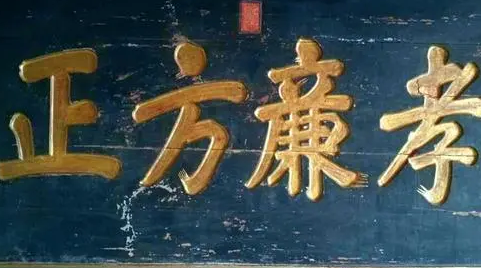 孝廉方正